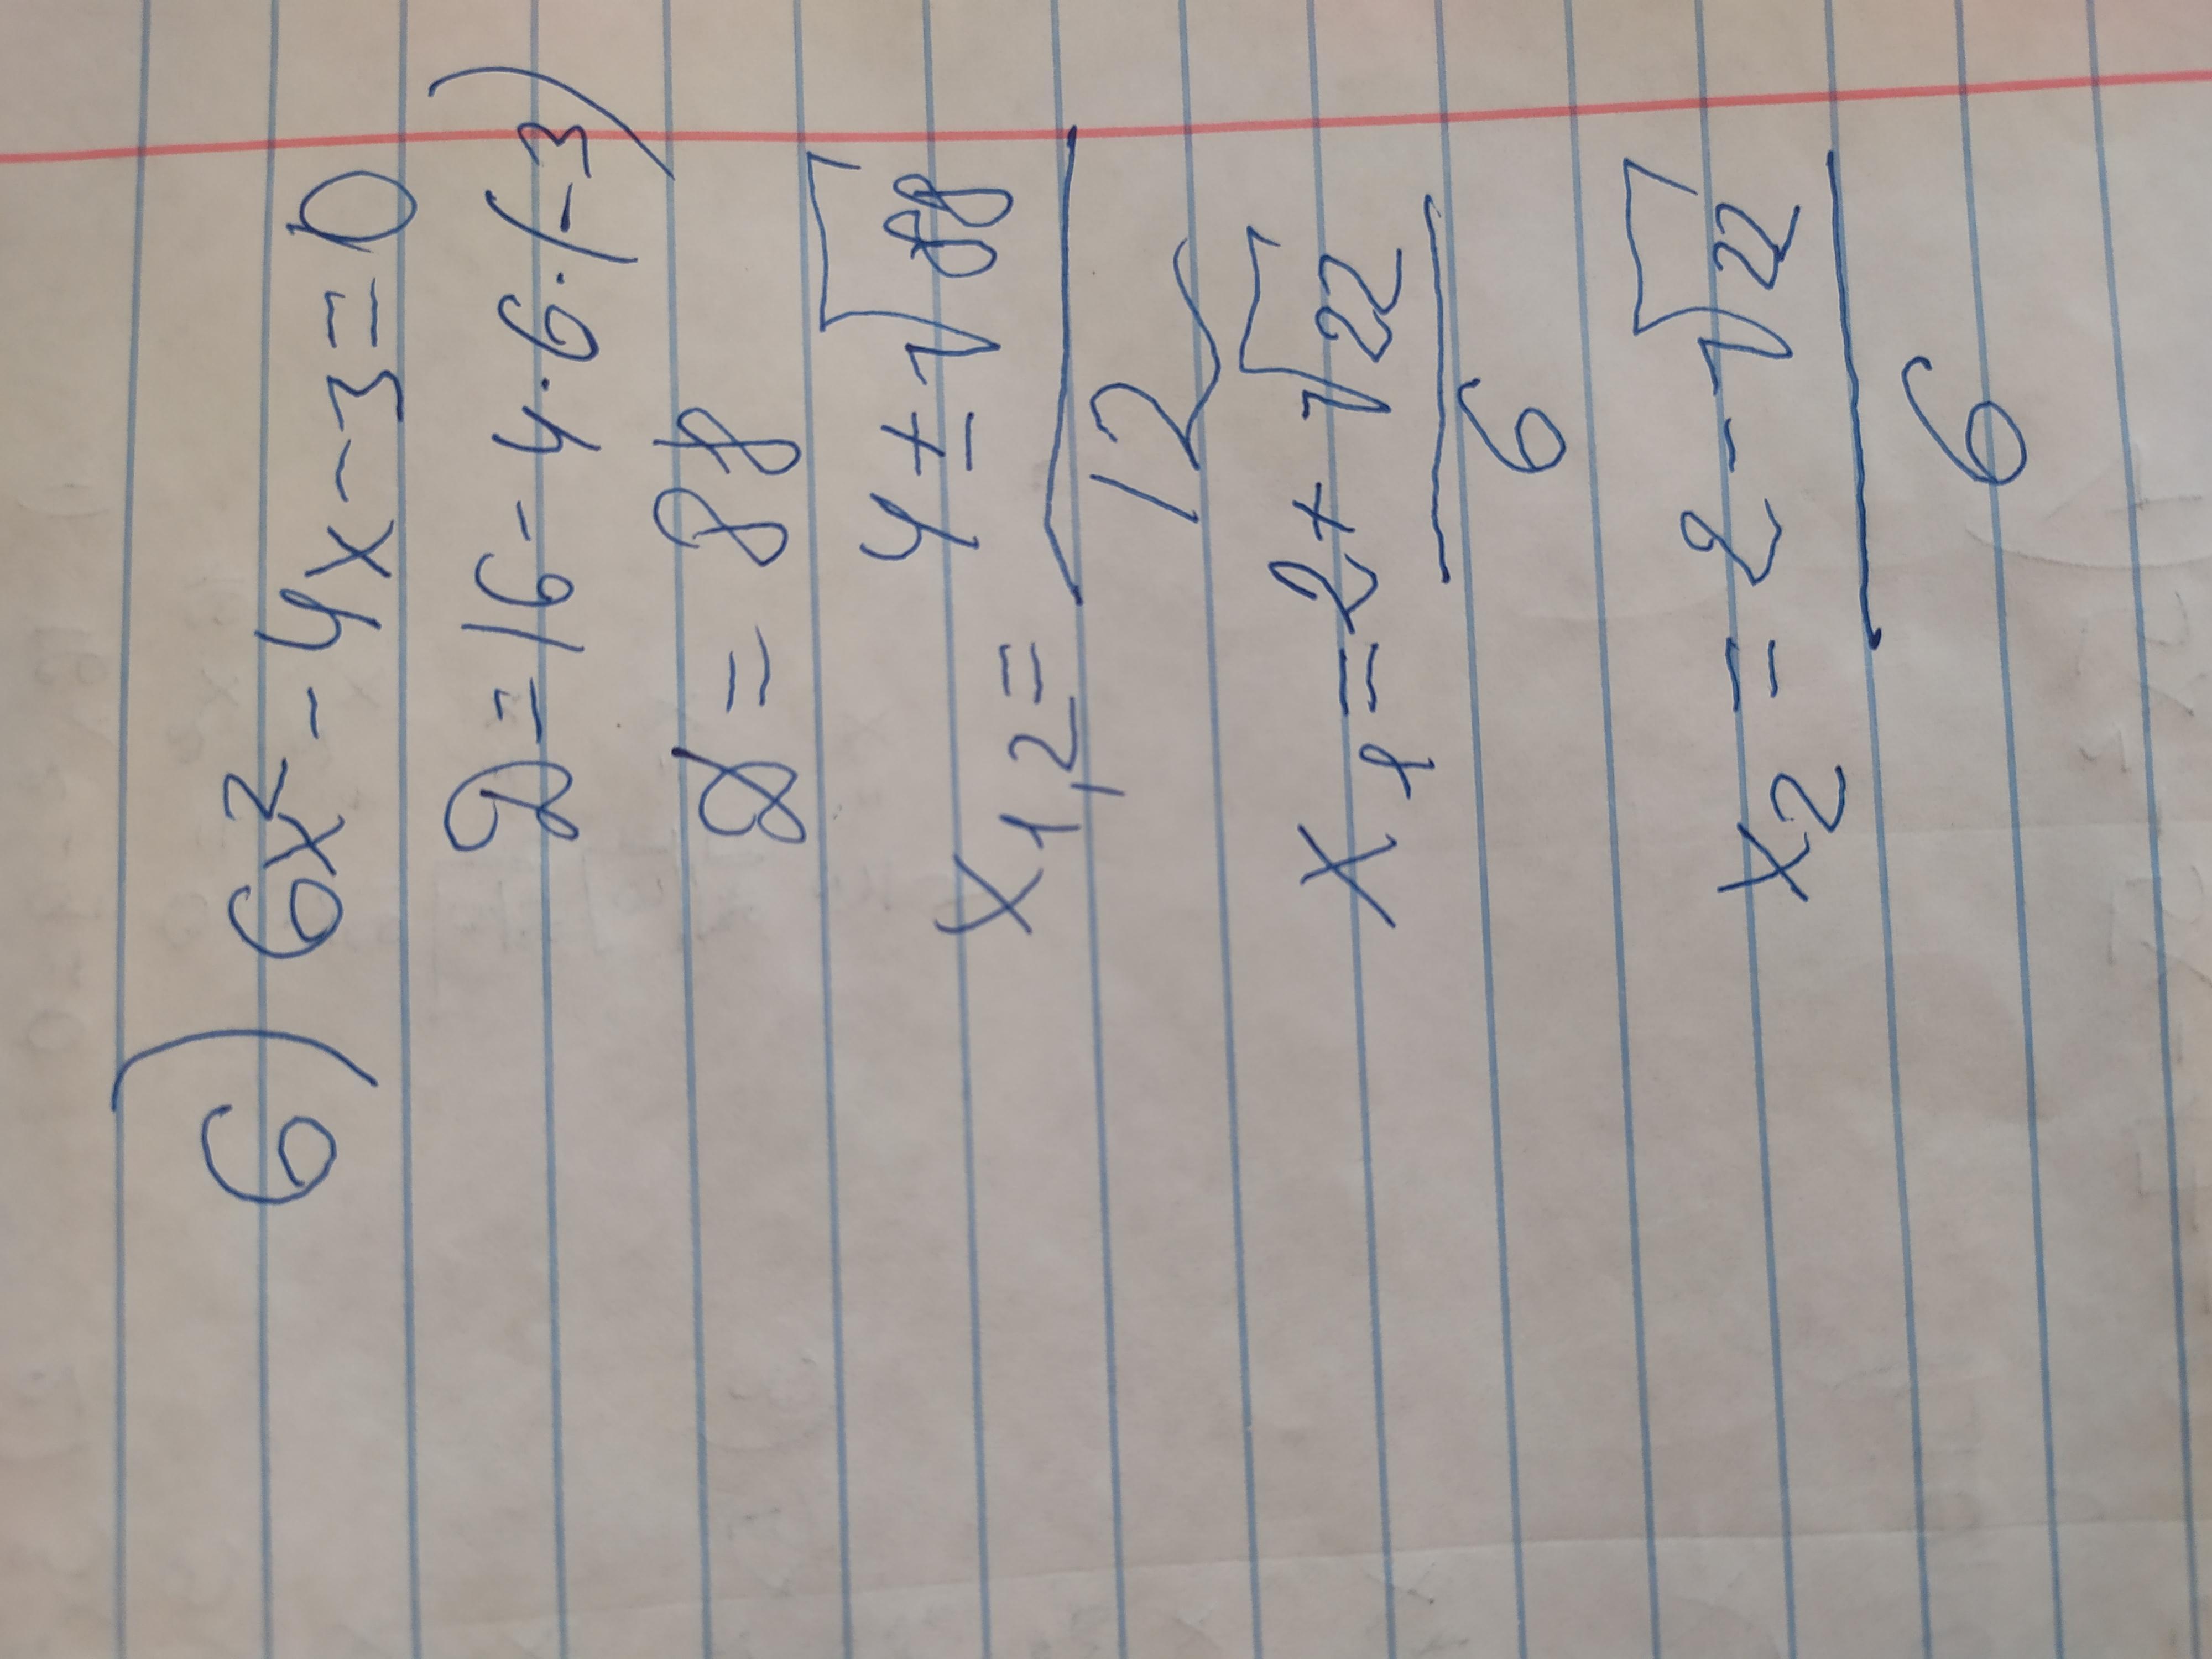 6) 6x² - 4x - 3 = 0
D = 16 - 4·6·(-3)
D = 88
x₁,₂ = (4 ± √88) / 12
x₁ = (2 + √22) / 6
x₂ = (2 - √22) / 6